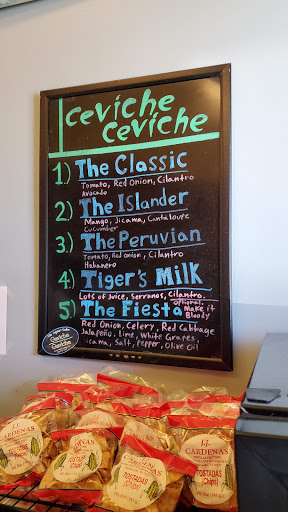 ceviche
ceviche
1) The Classic
Tomato, Red Onion, Cilantro
Avocado
2) The Islander
Mango, Jicama, Cantaloupe
Cucumber
3) The Peruvian
Tomato, Red onion, Cilantro
Habanero
4) Tiger's Milk
Lots of Juice, Serranos, Cilantro.
optional: Make it
Bloody
5) The Fiesta
Red Onion, Celery, Red Cabbage
Jalapeño, Lime, White Grapes,
Jicama, Salt, Pepper, Olive Oil
Ceviche
Ceviche
CARDENAS
TOSTADAS
(Chips)
CARDENAS
TOSTADAS
(Chips)